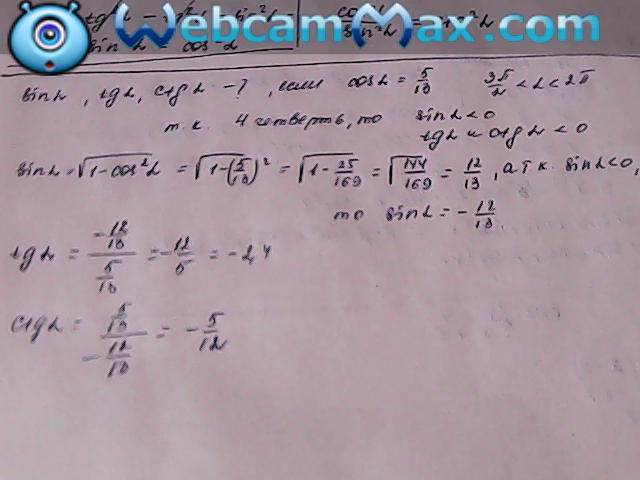 WebcamMax.com
tgα
sin²α = cos²α
sinα, tgα, ctgα - ?, если cosα = 5/13 3π/2 < α < 2π
т.к. 4 четверть, то sinα < 0
tgα и ctgα < 0
sinα = √1-cos²α = √1-(5/13)² = √1-25/169 = √144/169 = 12/13, а т.к. sinα<0,
то sinα = -12/13.
tgα = (-12/13)/(5/13) = -12/5 = -2,4
ctgα = (5/13)/(-12/13) = -5/12